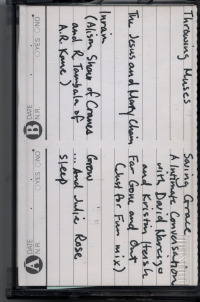 Throwing Muses Saving Grace
A Intimate Conversation
with David Narcizo
and Kristin Hersh
The Jesus and Mary Chain Far Gone and Out
(Just for Fun mix)
Inrain Grow
(Alison Shaw of Cranes ... And Julie Rose
and R Tambala of Sleep
A.R. Kane)
B DATE
N.R. YES NO
A DATE
N.R. YES NO